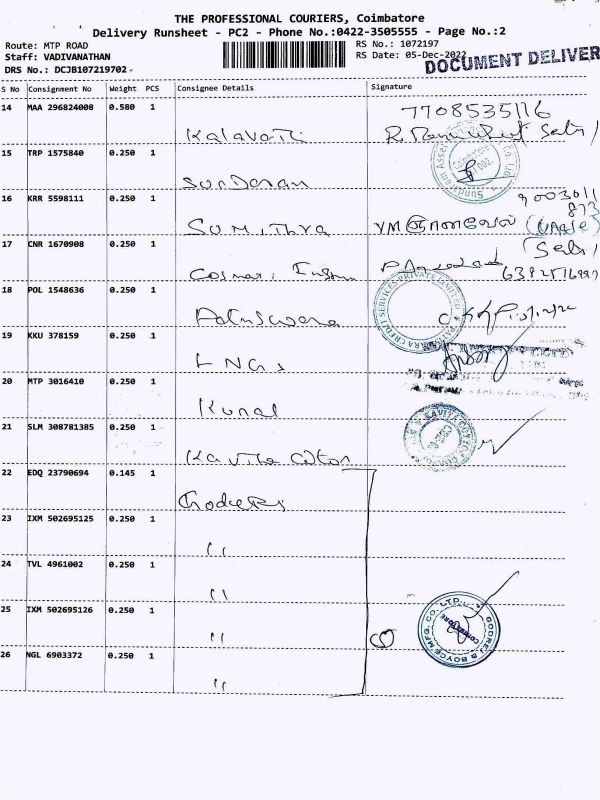 THE PROFESSIONAL COURIERS, Coimbatore
Delivery Runsheet - PC2 - Phone No.:0422-3505555 - Page No.:2
Route: MTP ROAD
RS No.: 1072197
Staff: VADIVANATHAN
RS Date: 05-Dec-2022
DOCUMENT DELIVER
DRS No.: DCJB107219702
S No Consignment No Weight PCS Consignee Details Signature
14 MAA 296824008 0.580 1 Kalavathi 7708535116
15 TRP 1575840 0.250 1 Sundaram
16 KRR 5598111 0.250 1 Sumithra
17 CNR 1670908 0.250 1
18 POL 1548636 0.250 1
PRIVATE LIMITED
CREDIT SERVICES
19 KKU 378159 0.250 1 LNGS
20 MTP 3016410 0.250 1 Kunal
21 SLM 308781385 0.250 1 Kavitha Cotton
22 EDQ 23790694 0.145 1 Godrej
23 IXM 502695125 0.250 1 "
24 TVL 4961002 0.250 1 "
25 IXM 502695126 0.250 1 "
GODREJ & BOYCE MFG. CO. LTD.
COIMBATORE
26 NGL 6903372 0.250 1 "